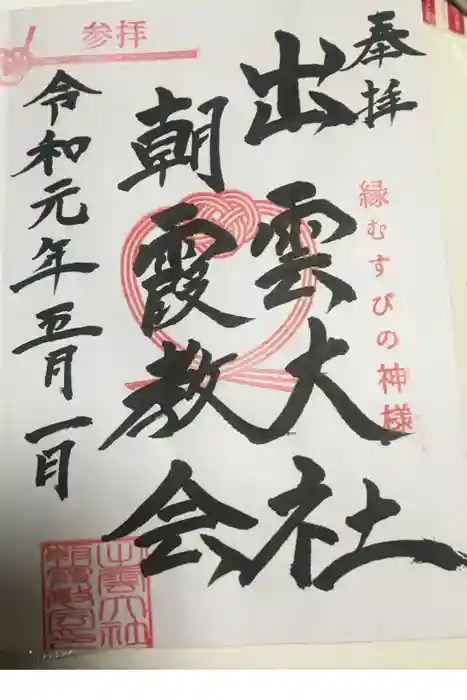 奉拝
縁むすびの神様
出雲大社
朝霞教会
参拝
令和元年五月一日
出雲大社
朝霞教会印